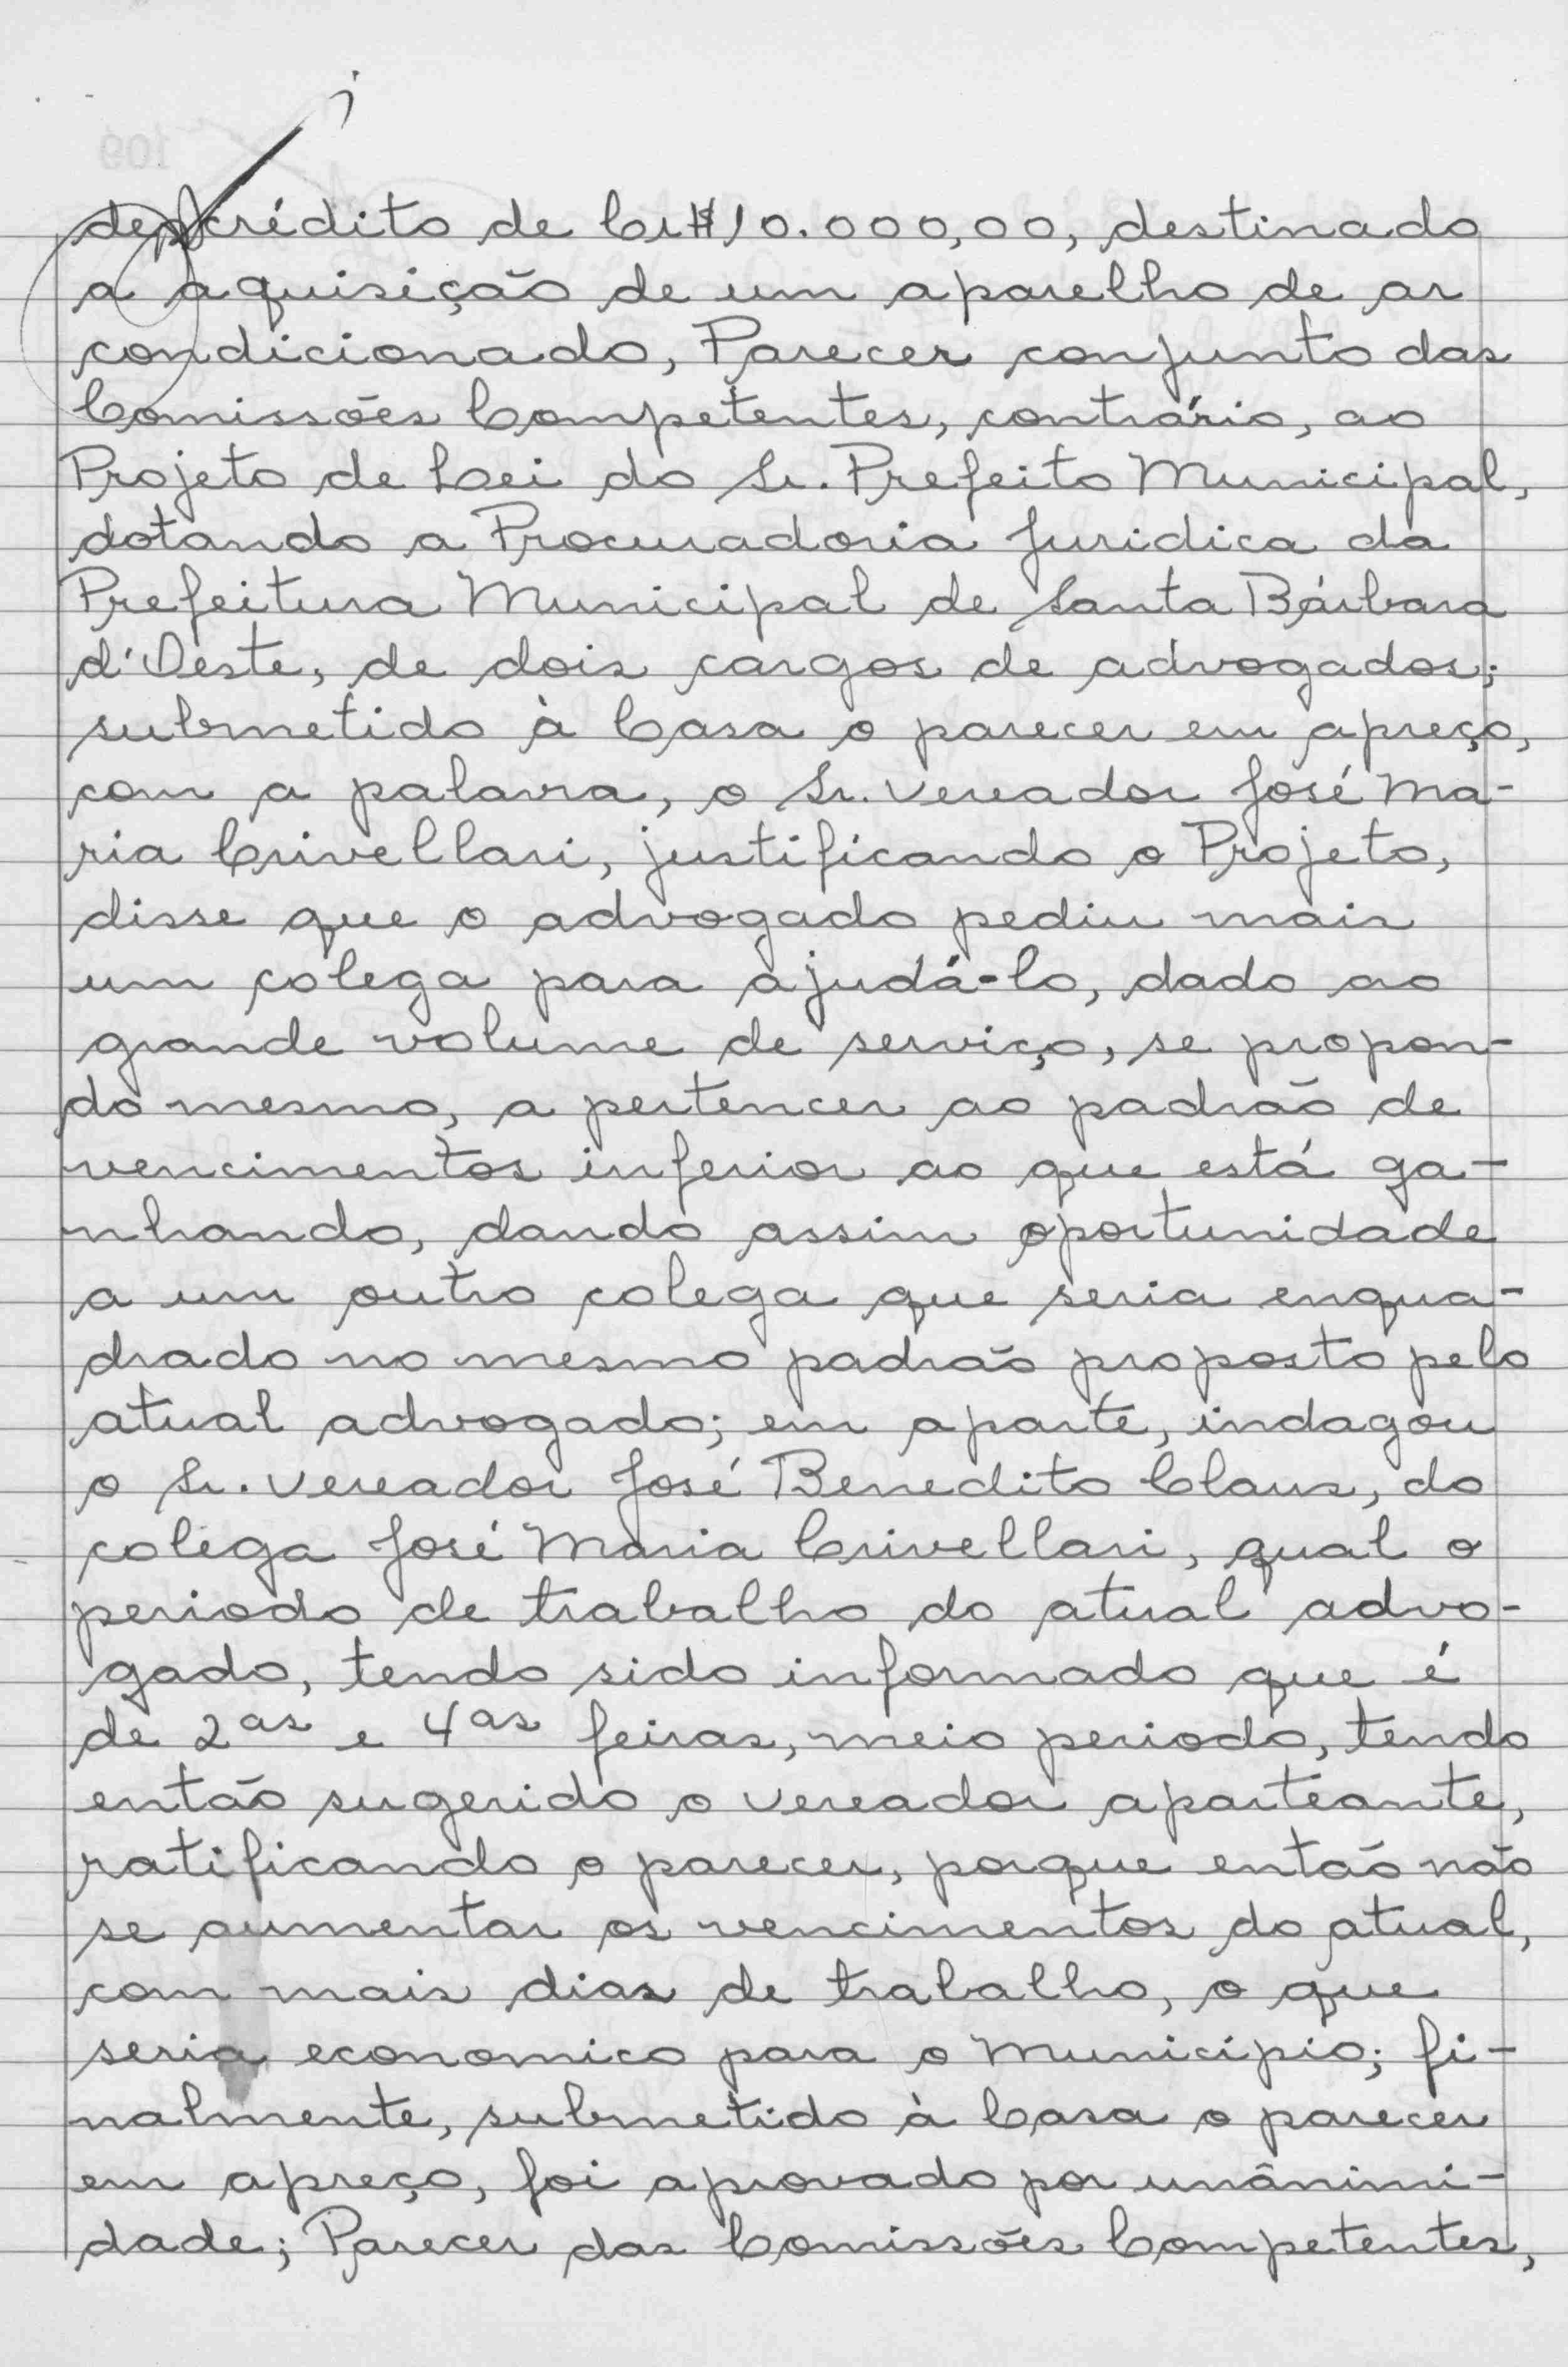 de crédito de Cr$10.000,00, destinado
a aquisição de um aparelho de ar
condicionado, Parecer conjunto das
Comissões Competentes, contrário, ao
Projeto de Lei do Sr. Prefeito Municipal,
dotando a Procuradoria Juridica da
Prefeitura Municipal de Santa Bárbara
d'Oeste, de dois cargos de advogados;
submetido à Casa o parecer em apreço,
com a palavra, o Sr. Vereador José Ma-
ria Crivellari, justificando o Projeto,
disse que o advogado pediu mais
um colega para ajudá-lo, dado ao
grande volume de serviço, se propon-
do mesmo, a pertencer ao padrão de
vencimentos inferior ao que está ga-
nhando, dando assim oportunidade
a um outro colega que seria enqua-
drado no mesmo padrão proposto pelo
atual advogado; em aparte, indagou
o Sr. Vereador José Benedito Claus, do
colega José Maria Crivellari, qual o
periodo de trabalho do atual advo-
gado, tendo sido informado que é
de 2as e 4as feiras, meio periodo, tendo
então sugerido o Vereador aparteante,
ratificando o parecer, porque então não
se aumentar os vencimentos do atual,
com mais dias de trabalho, o que
seria economico para o Município; fi-
nalmente, submetido à Casa o parecer
em apreço, foi aprovado por unânimi-
dade; Parecer das Comissões Competentes,